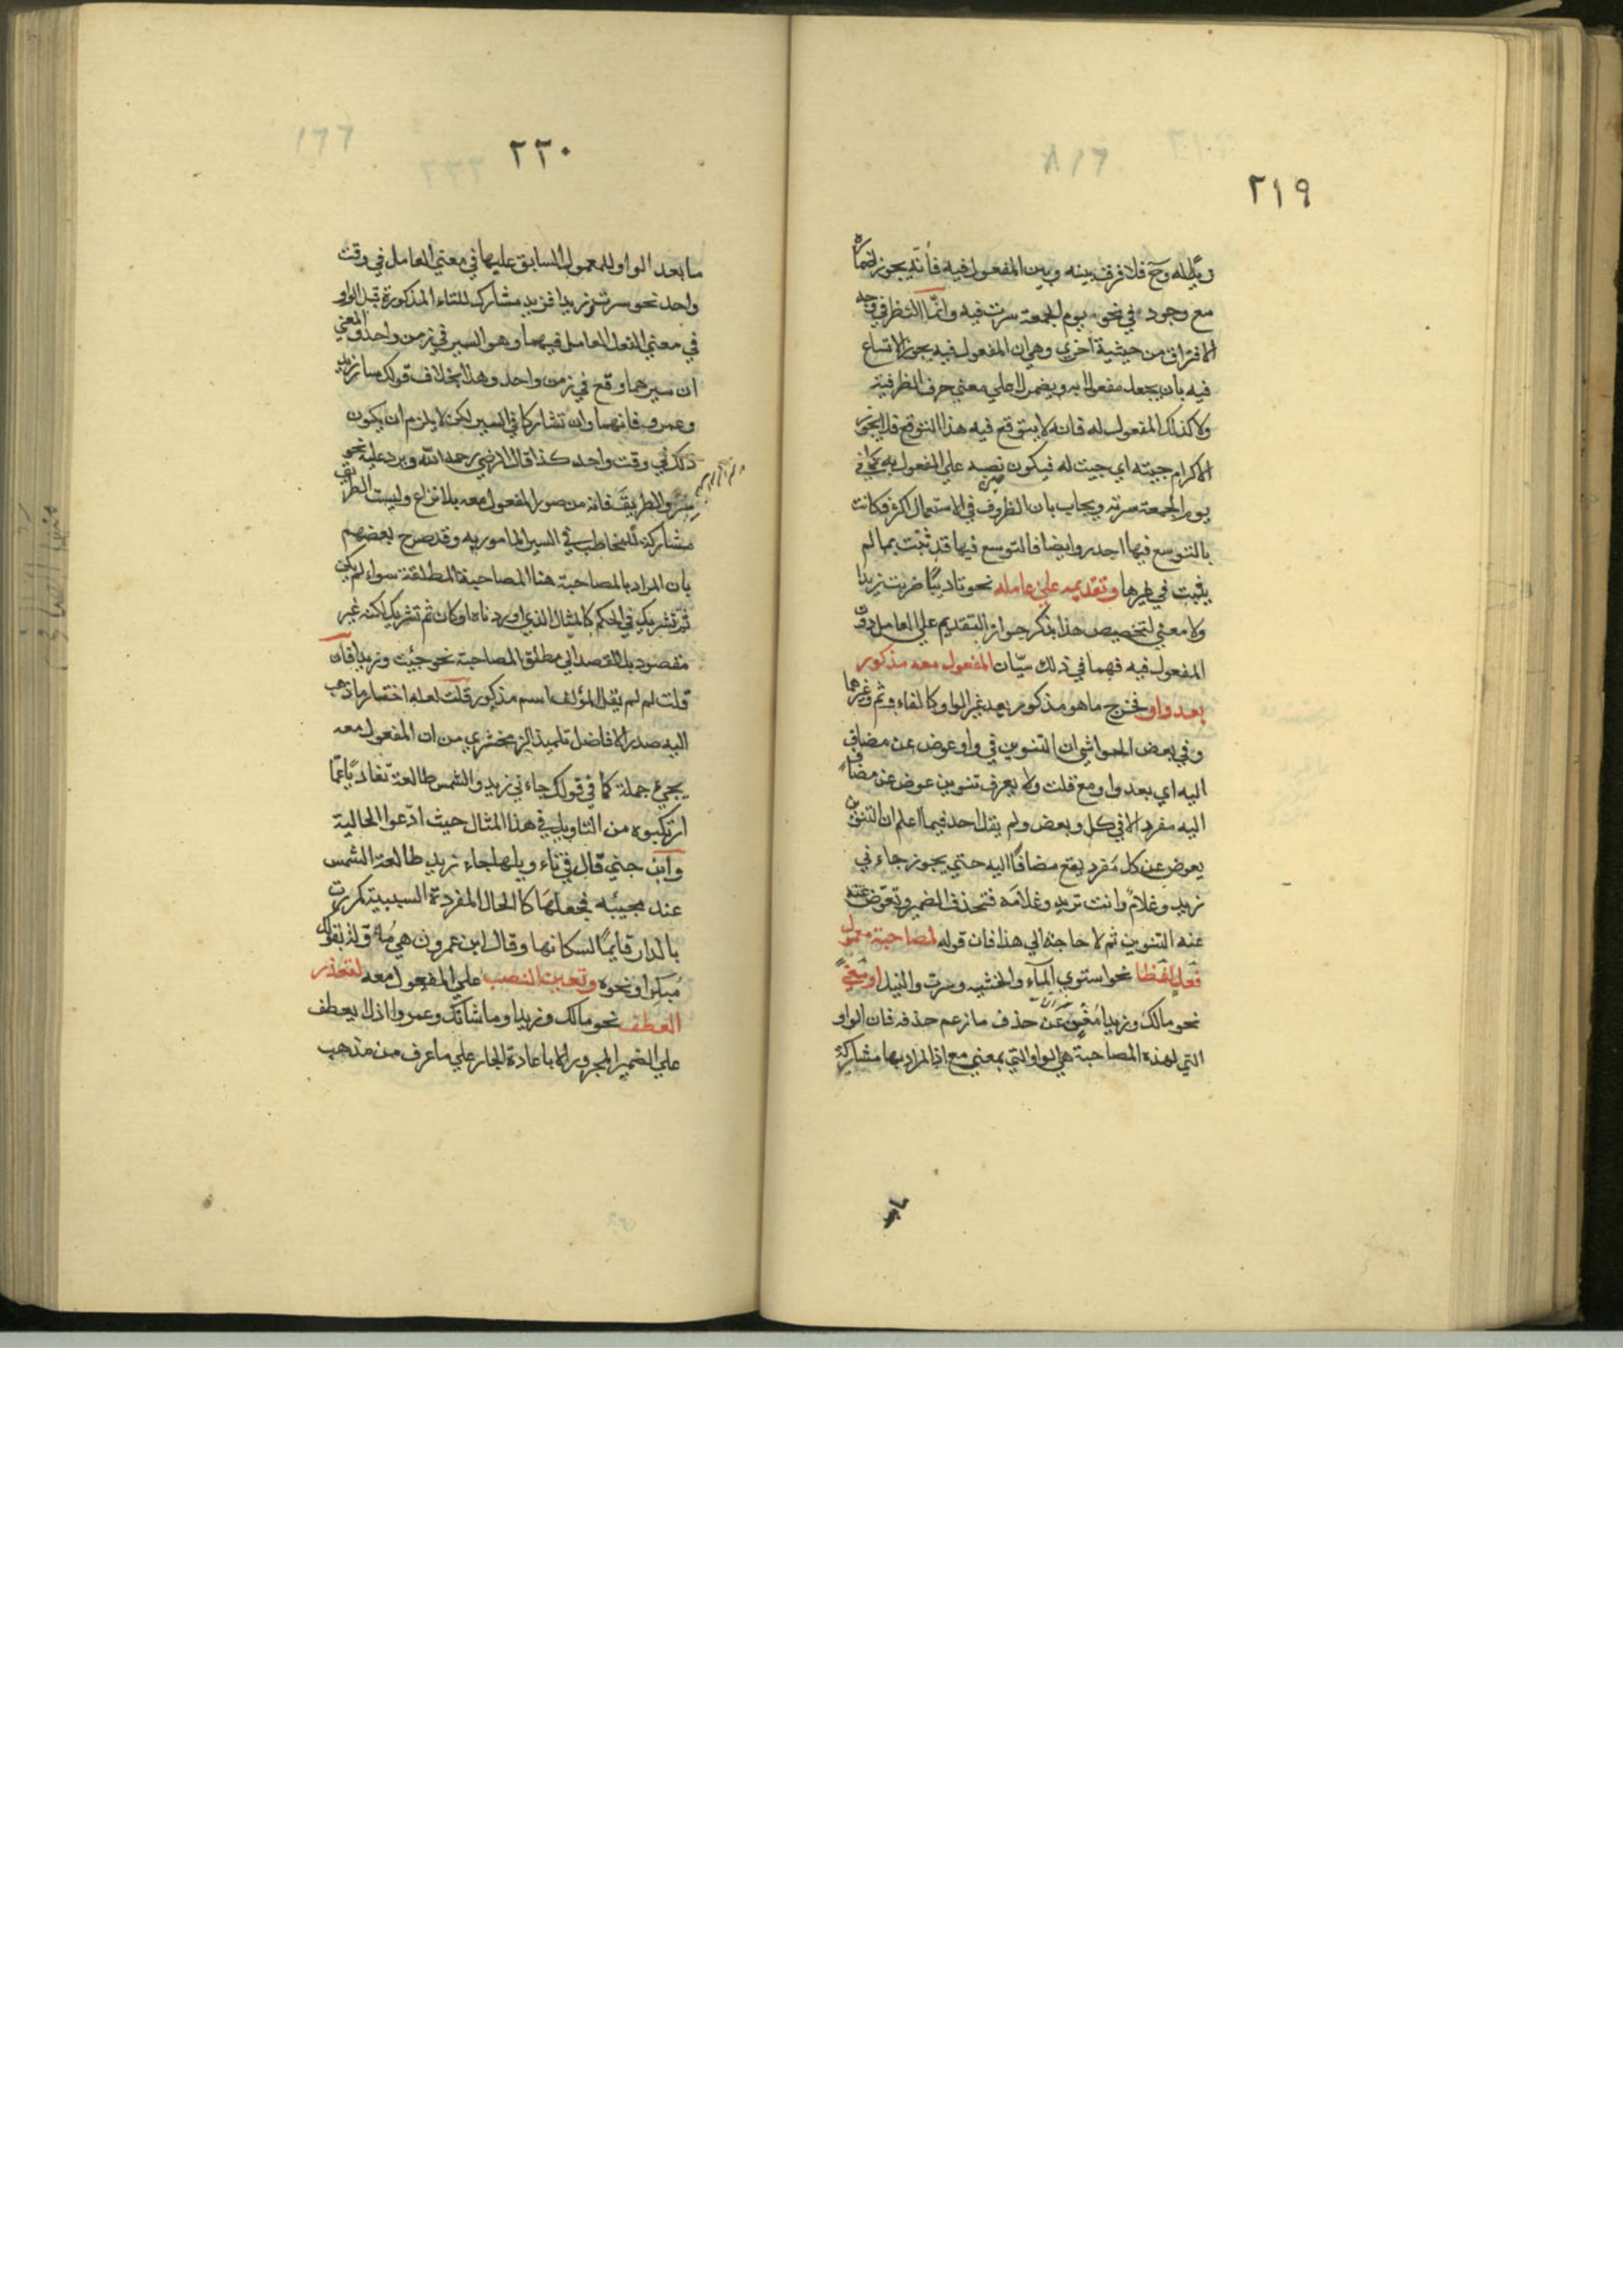 ٢١٩
له وح فلا فرق بينه وبين المفعول فيه فانه يجوز اضماره
مع وجود في نحو يوم الجمعة سرت فيه وانما النظر في وجه
الافتراق من حيثية اخري وهي ان المفعول فيه يجوز الاتساع
فيه بان يجعل مفعولا به ويضمر لا علي معني حرف الظرفية
ولا كذلك المفعول له فانه لا يتوقع فيه هذا التوقع فلا يجوز
الاكرام جيته اي جيت له فيكون نصبه علي المفعول به كما في
يوم الجمعة سرته ويجاب بان الظروف في الاستعمال اكثر فكانت
بالتوسع فيها اجدر وايضا فالتوسع فيها قد ثبت بما لم
يثبت في غيرها وتقديمه علي عامله نحو تاديبًا ضربت زيدا
ولا معني لتخصيص هذا بذكر جواز التقديم علي العامل دون
المفعول فيه فهما في ذلك سيّان المفعول معه مذكور
بعد واو فخرج ما هو مذكور بعد غير الواو كالفاء وثم وغيرهما
وفي بعض الحواشي ان التنوين في واو عوض عن مضاف
اليه اي بعد واو مع قلت ولا يعرف تنوين عوض عن مضاف
اليه مفرد الا في كل وبعض ولم يقل احد فيما اعلم ان التنوين
يعوض عن كل مفرد يقع مضافًا اليه حتي يجوز جاءني
زيد وغلامٌ وانت تريد وغلامه فتحذف الضمير وتعوض عنه
عنه التنوين ثم لا حاجة الي هذا فان قوله لمصاحبة معمول
فعل لفظا نحو استوي المآء والخشبه وسرت والنيل او معنيً
نحو مالك وزيدا مغني عن حذف ما زعم حذفه فان الواو
التي لهذه المصاحبة هي الواو التي بمعني مع اذ المراد بها مشاركة
٢٢٠
ما بعد الواو للمعمول السابق عليها في معني العامل في وقت
واحد نحو سرت وزيدا فزيد مشارك للتاء المذكورة قبل الواو
في معني الفعل العامل فيهما وهو السير في زمن واحد والمعني
ان سيرهما وقع في زمن واحد وهذا بخلاف قولك سار زيد
وعمرو فانهما وان تشاركا في السير لكن لا يلزم ان يكون
ذلك في وقت واحد كذا قال الرضي رحمه الله ويرد عليه نحو
سِرْ والطريقَ فانه من صور المفعول معه بلا نزاع وليست الطريق
مشاركة للمخاطب في السير المامور به وقد صرح بعضهم
بان المراد بالمصاحبة هنا المصاحبة المطلقة سواء لم يكن
ثم تشريك في الحكم كالمثال الذي اوردناه او كان ثم تشريك لكنه غير
مقصود بل القصد الي مطلق المصاحبة نحو جيت وزيدا فان
قلت لم لم يقل المؤلف اسم مذكور قلت لعله اختار ما ذهب
اليه صدر الافاضل تلميذ الزمخشري من ان المفعول معه
يجيء جملة كما في قولك جاءني زيد والشمس طالعة تفاديًا عمّا
ارتكبوه من التاويل في هذا المثال حيث ادّعوا الحالية
وابن جني قال في تاويلها جاء زيد طالعة الشمس
عند مجيئه فجعلها كالحال المفردة السببية كمررت
بالدار قايمًا سكانها وقال ابن عمرون هي مؤوّلة بقولك
مُبَكِّرا ونحوه وتعين النصب علي المفعول معه لتعذر
العطف نحو مالك وزيدا وما شانك وعمروا اذ لا يعطف
علي الضمير المجرور الا باعادة الجار علي ما عرف من مذهب